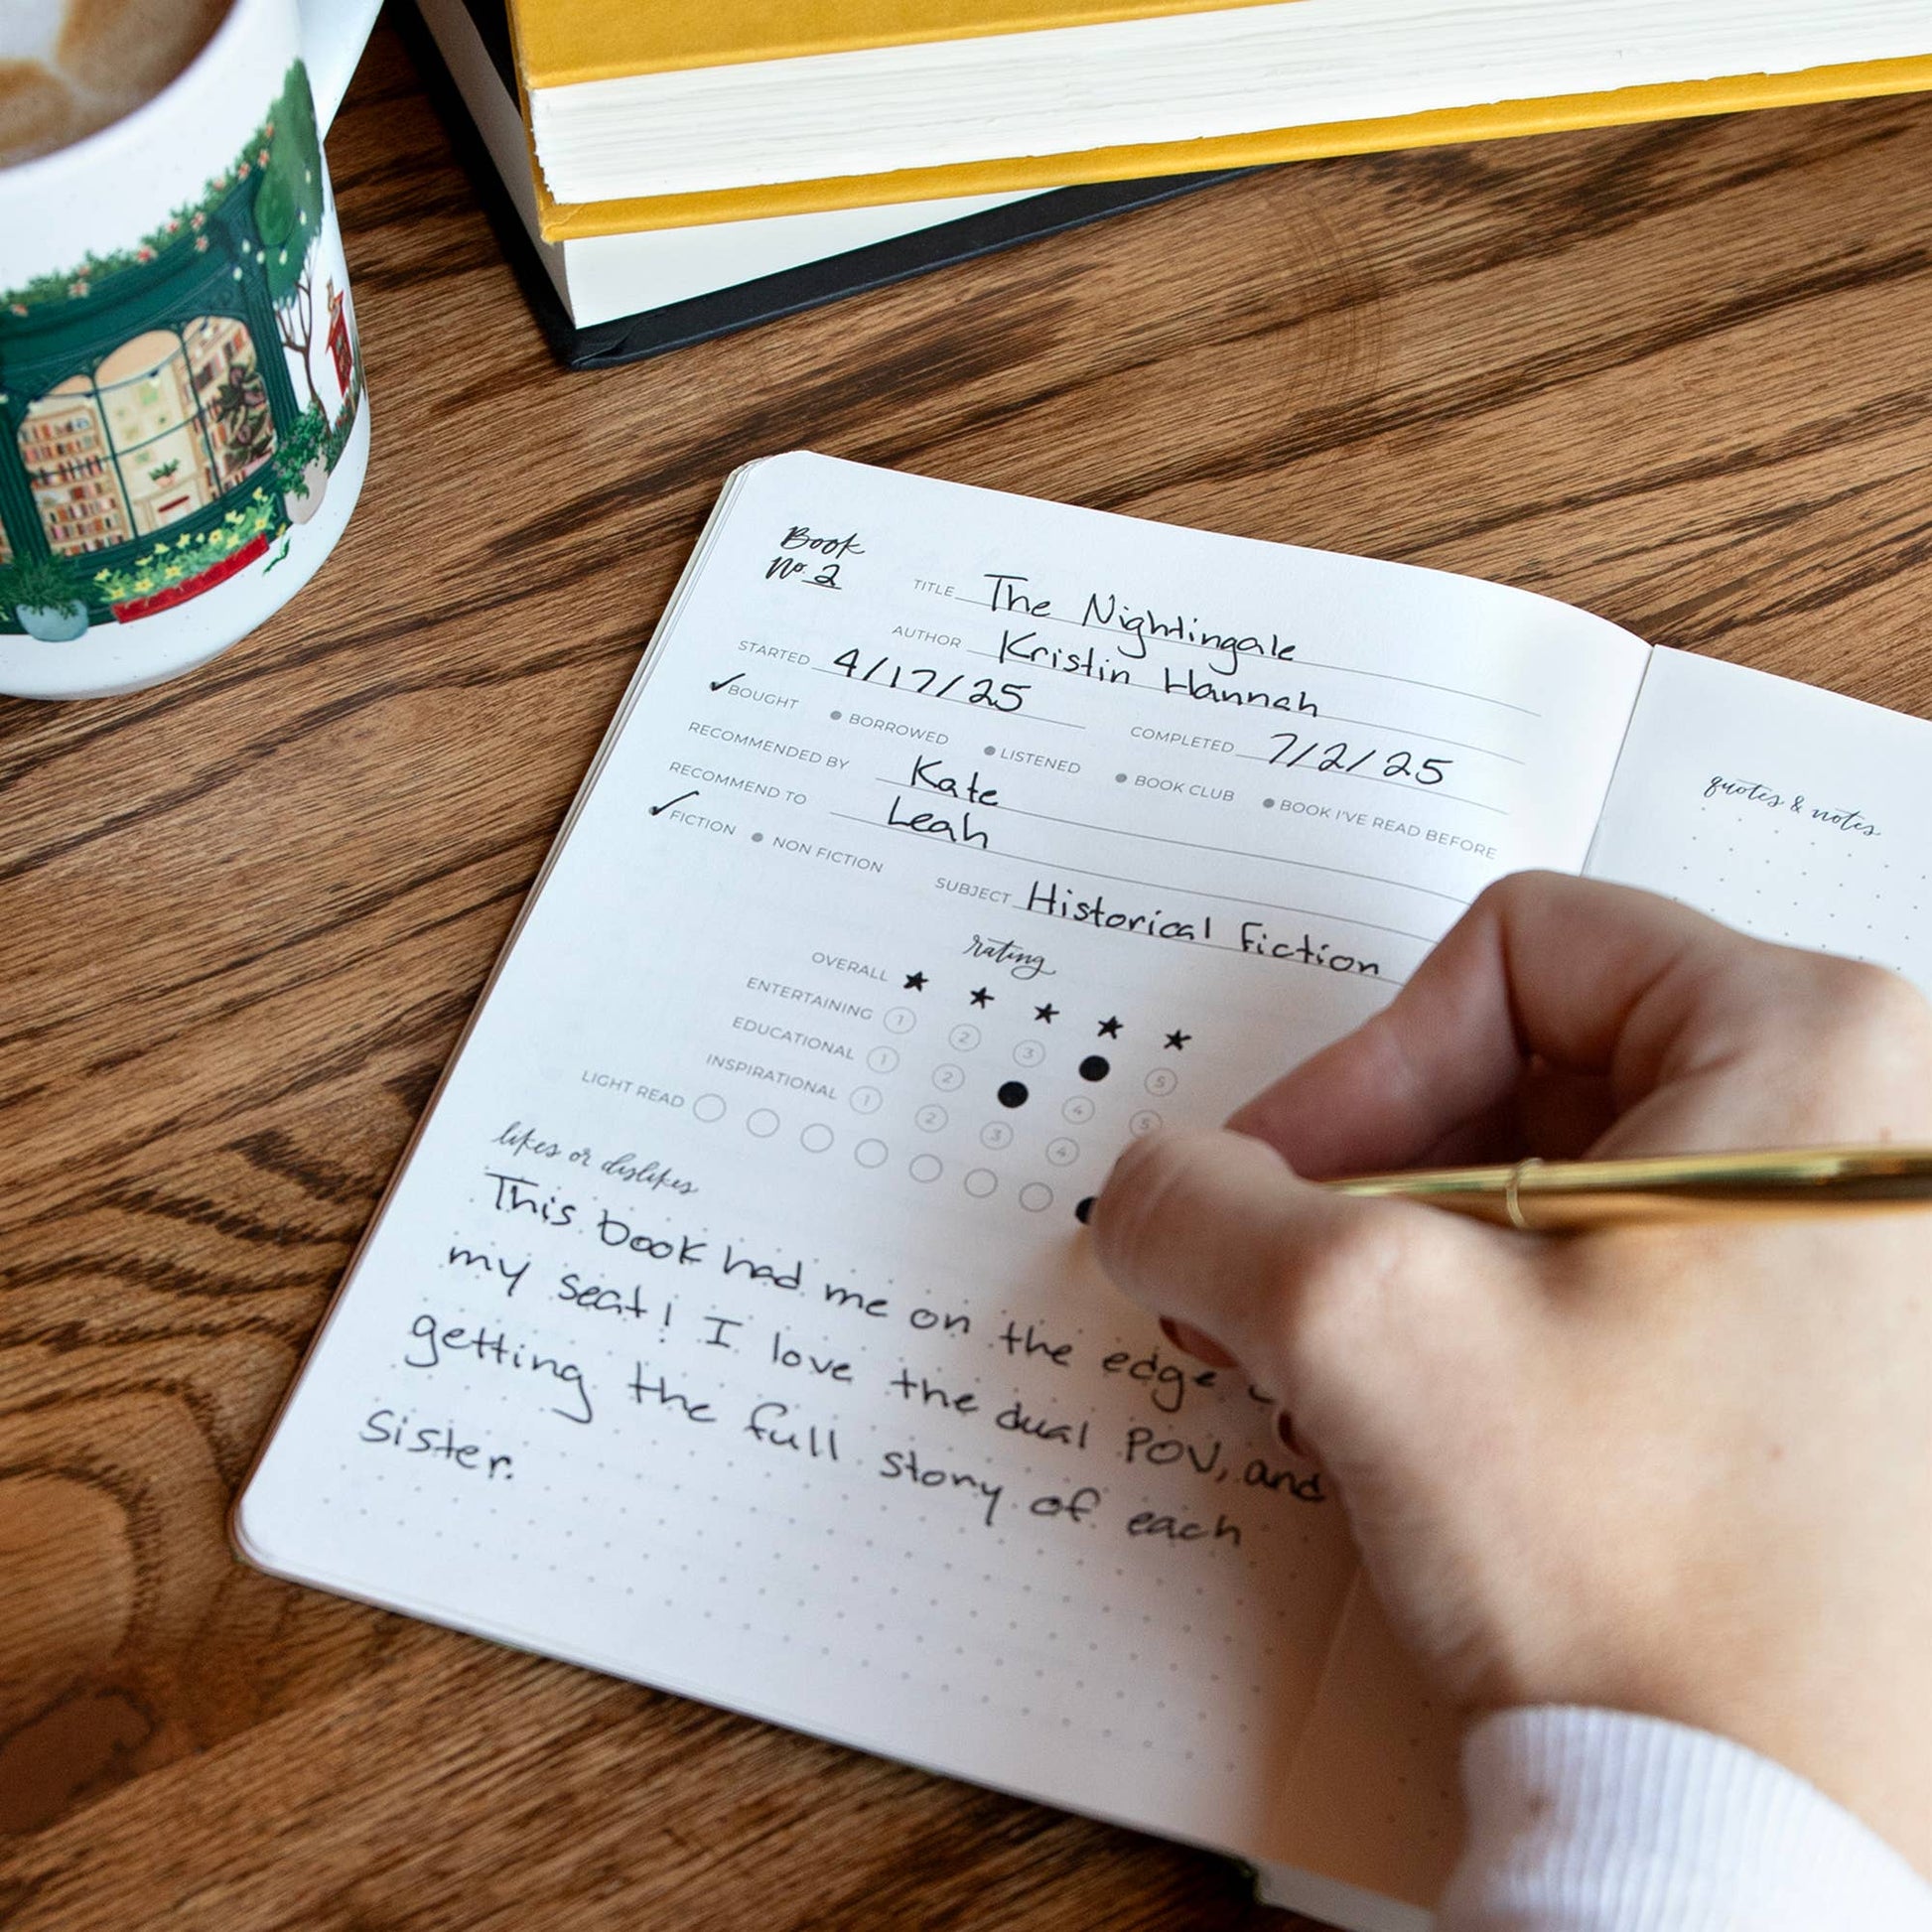 Book
No. 2
TITLE The Nightingale
AUTHOR Kristin Hannah
STARTED 4/17/25 COMPLETED 7/2/25
BOUGHT BORROWED LISTENED BOOK CLUB BOOK I'VE READ BEFORE
RECOMMENDED BY Kate
RECOMMEND TO Leah
FICTION NON FICTION SUBJECT Historical Fiction
rating
OVERALL
ENTERTAINING 1 2 3 5
EDUCATIONAL 1 2 4 5
INSPIRATIONAL 1 2 3 4
LIGHT READ
likes or dislikes
This book had me on the edge
my seat! I love the dual POV, and
getting the full story of each
sister.
quotes & notes